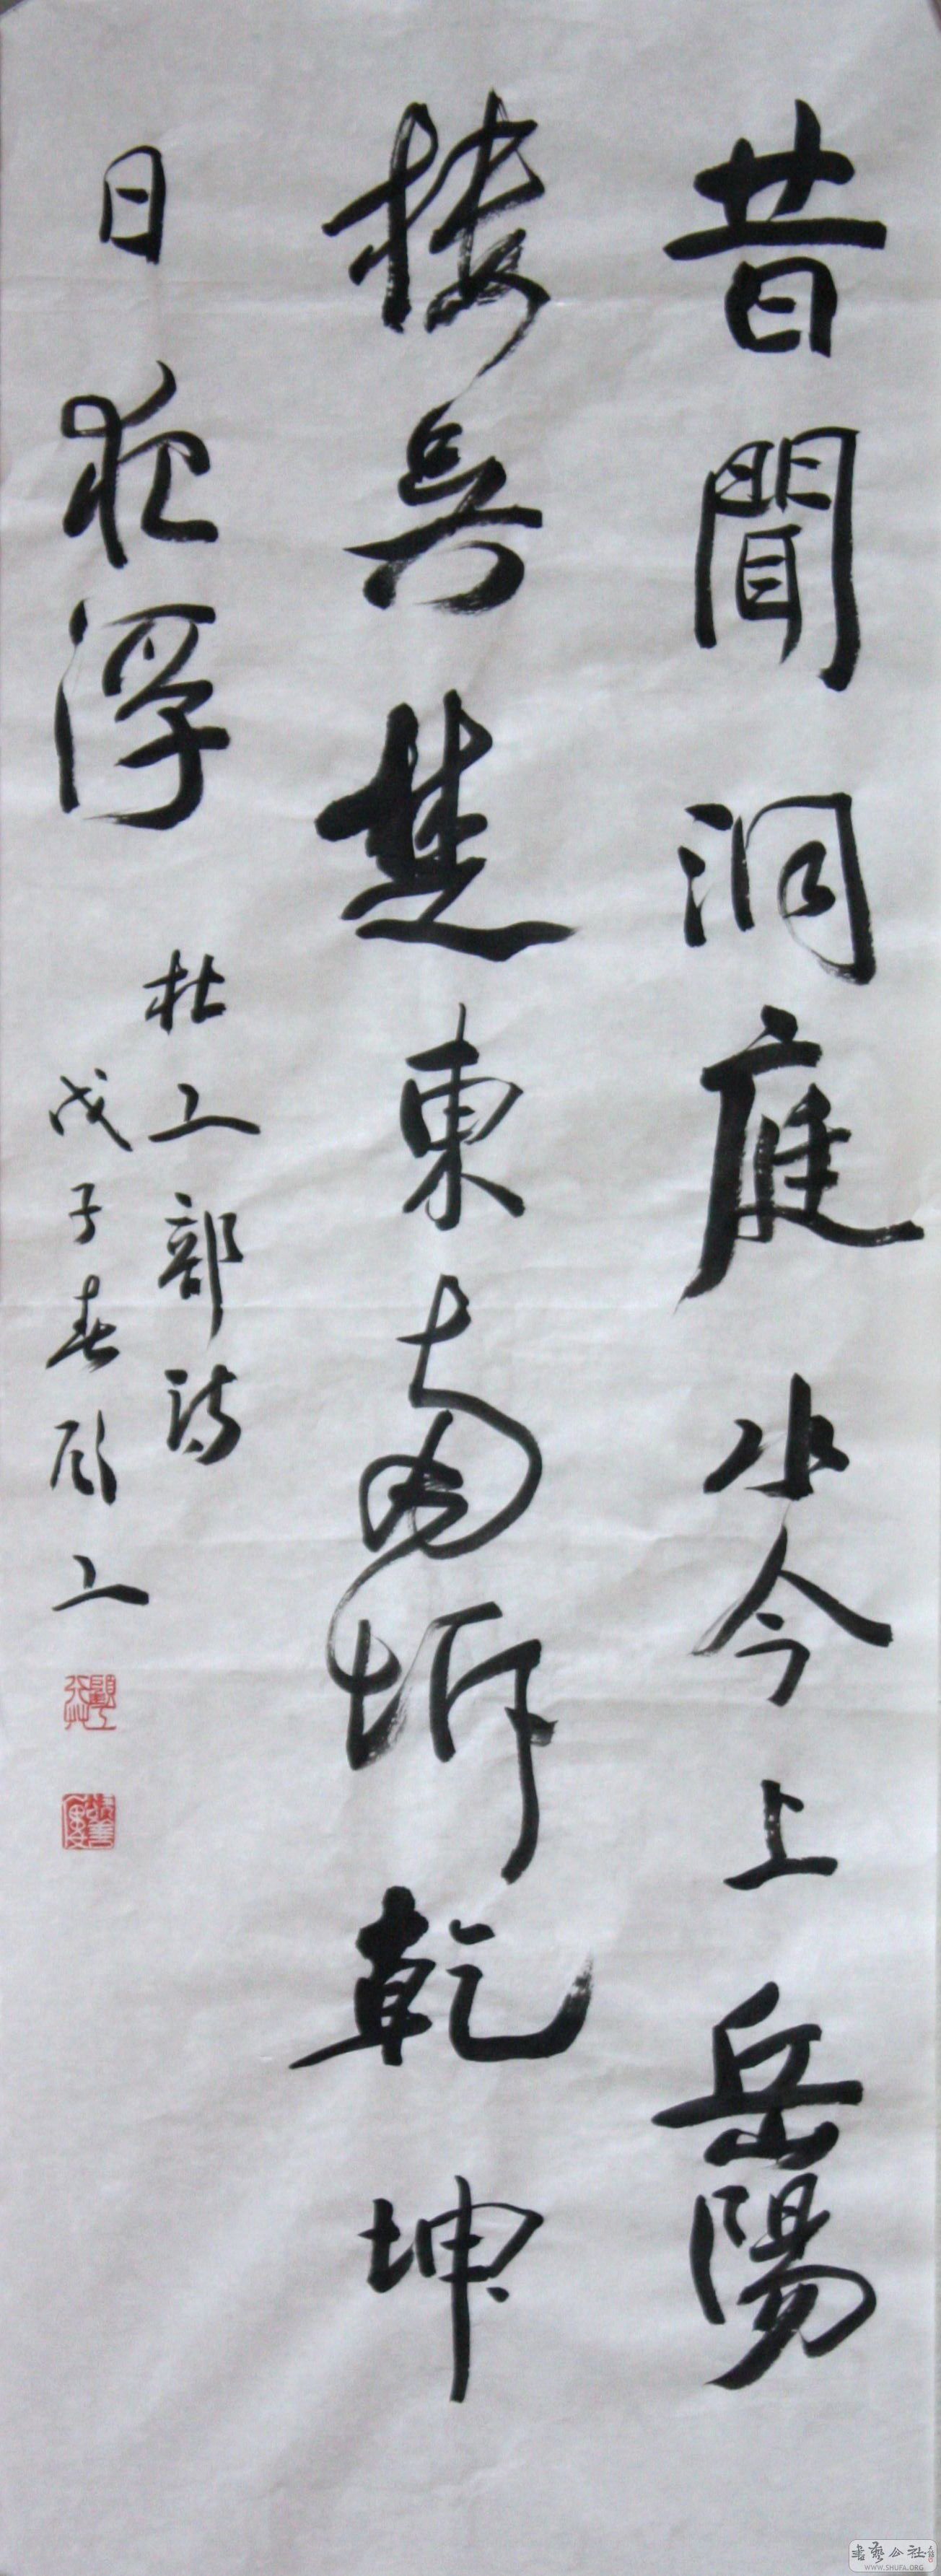 昔聞洞庭水今上岳陽
樓吳楚東南坼乾坤
日夜浮
杜工部詩
戊子春顾工
書藝公社
WWW.SHUFA.ORG